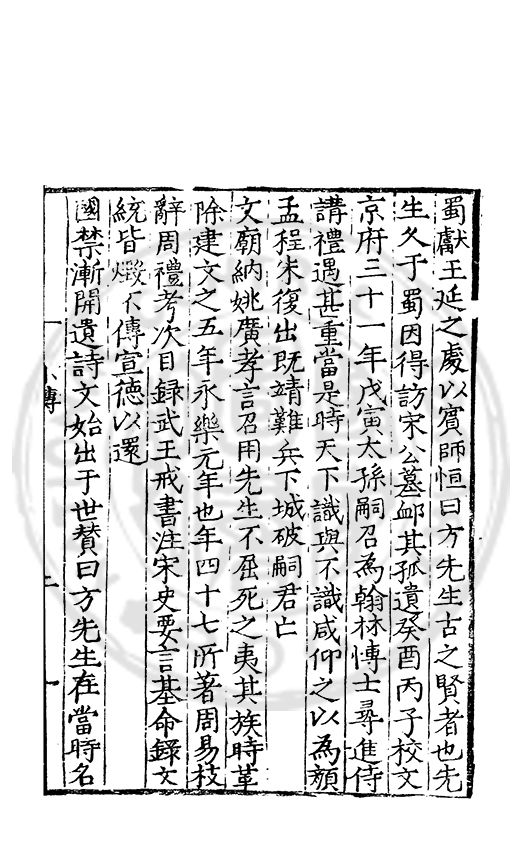 蜀獻王延之處以賓師恒曰方先生古之賢者也先
生久于蜀因得訪宋公墓卹其孤遺癸酉丙子校文
京府三十一年戊寅太孫嗣召為翰林愽士尋進侍
講禮遇甚重當是時天下識與不識咸仰之以為顏
孟程朱復出既靖難兵下城破嗣君亡
文廟納姚廣孝言召用先生不屈死之夷其族時革
除建文之五年永樂元年也年四十七所著周易枝
辭周禮考次目録武王戒書注宋史要言基命錄文
統皆燬不傳宣德以還
國禁漸開遺詩文始出于世贊曰方先生在當時名
小傳